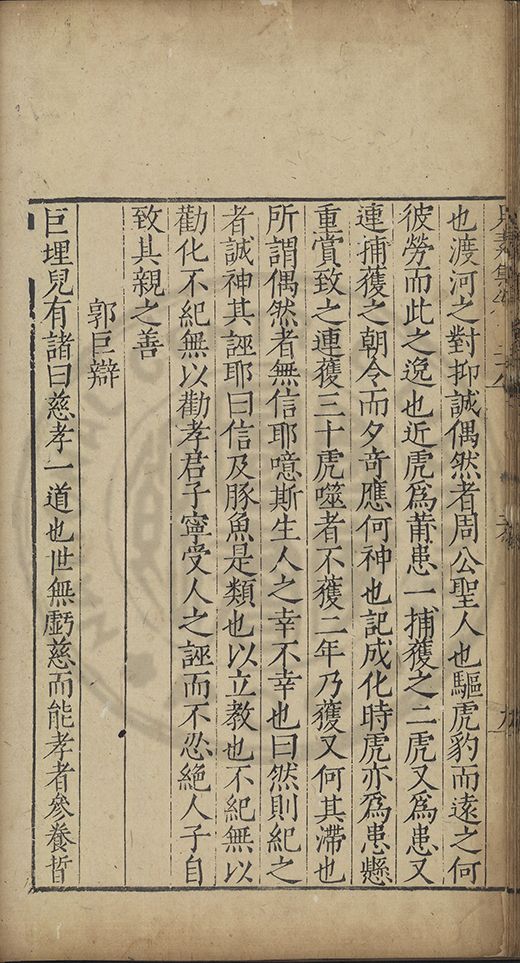 也渡河之對抑誠偶然者周公聖人也驅虎豹而遠之何
彼勞而此之逸也近虎爲莆患一捕獲之二虎又爲患又
連捕獲之朝令而夕奇應何神也記成化時虎亦爲患懸
重賞致之連獲三十虎噬者不獲二年乃獲又何其滯也
所謂偶然者無信耶噫斯生人之幸不幸也曰然則紀之
者誠神其誣耶曰信及豚魚是類也以立教也不紀無以
勸化不紀無以勸孝君子寧受人之誣而不忍絕人子自
致其親之善
郭巨辯
巨埋兒有諸曰慈孝一道也世無虧慈而能孝者參養晳